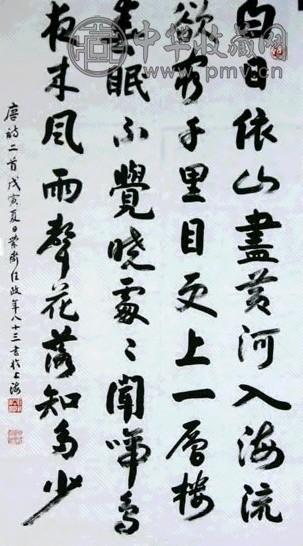 中华收藏网
www.pmv.cn
白日依山盡黄河入海流
欲窮千里目更上一層樓
春眠不覺曉處々聞啼鳥
夜来風雨聲花落知多少
唐詩二首戊寅夏日蘭齋任政年八十三書於上海